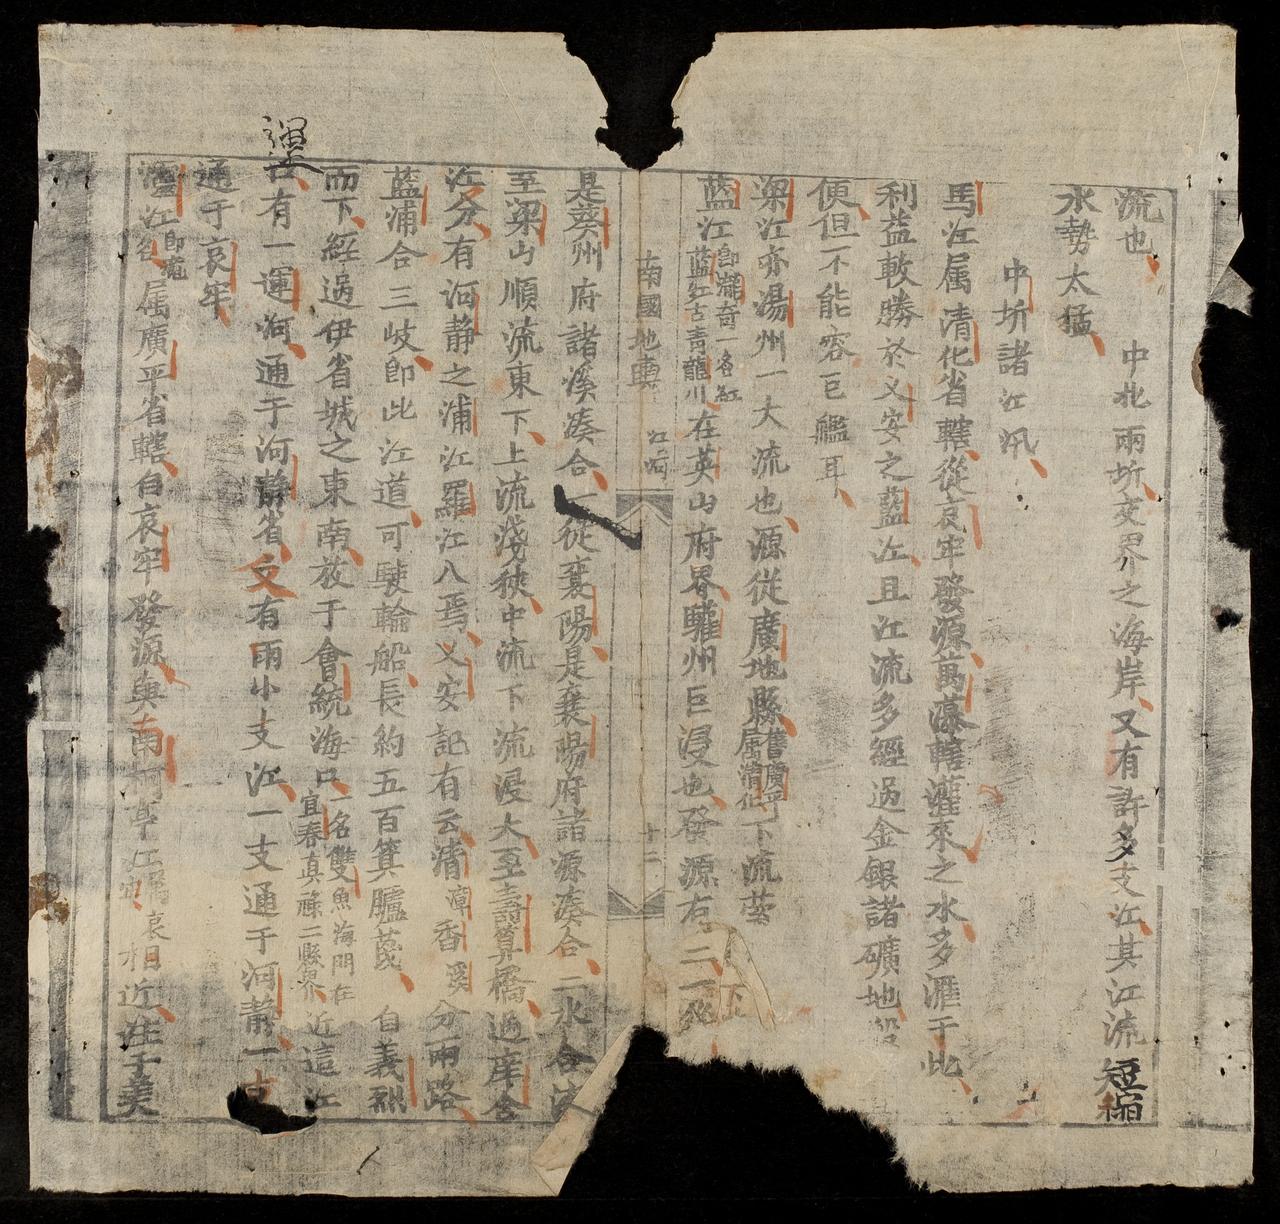 流也 中北兩圻交界之海岸又有許多支江其江流短縮
水勢太猛
中圻諸江汛
馬江属清化省轄從哀牢發源萬瀑轄灌來之水多滙于此
利益較勝於乂安之藍江且江流多經過金銀諸礦地
便但不能容巨艦耳
梁江亦湯州一大流也源從廣地縣舊廣平属清化下流
藍江即瀧奇一名紅藍江古青龍川在英山府界驩州巨浸也發源有二一從
南國地輿 江河 十二
是葵州府諸溪湊合一從襄陽是襄陽府諸源湊合二水合流
至梁山順流東下上流淺狹中流下流浸大至壽算橋過岸合
江分有河静之浦江羅江八焉乂安記有云清漳香溪分兩路
藍浦合三岐即此江道可駛輪船長約五百箕臚蔑自義烈
而下經過伊省城之東南放于會統海口一名雙魚海門在宜春真祿二縣界近這江
運
有一運河通于河静省又有兩小支江一支通于河静一支
通于哀牢
江即 属廣平省轄自哀牢發源與南 相近注于美